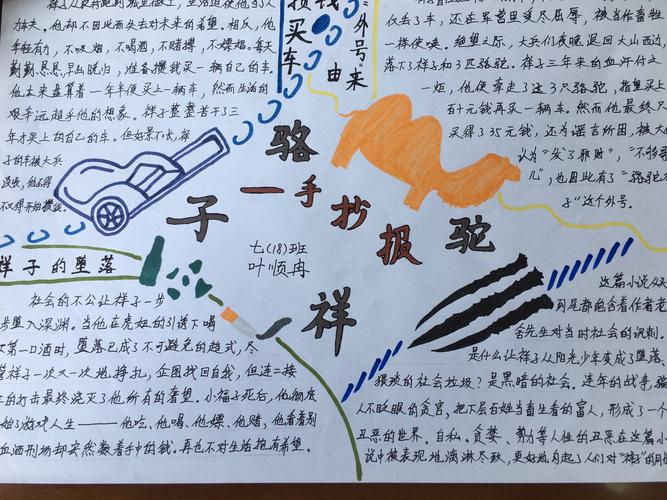 力车夫。他却不因此而失去对未来的希望。相反，他
年轻有力，不吸烟，不喝酒，不赌博，不嫖娼。每天
勤勤恳恳，早出晚归，准备攒钱买一辆自己的车。
他本来盘算着一年半便买上一辆车，然而生活的
艰辛远超乎他的想象。祥子整整苦干了三
年才买上的自己的车。但好景不长，祥
子的车被大兵
不得不开始攒钱。
攒钱
买车
外号
来
由
仅丢了车，还在军营里受尽屈辱，被当作畜牲
一样使唤。绝望之际，大兵们夜晚退回大山西边，
落下了祥子和3匹骆驼。祥子三年来的血汗付之
一炬，他便牵走了这3只骆驼，指望买上
百十元钱再买一辆车。然而他最终只
买得了35元钱，还为谣言所困，被大
认为“发了邪财”，“不够哥
儿”，也因此有了“骆驼
子”这个外号。
骆
驼
祥
子
一手抄报
七(18)班
叶顺冉
祥子的堕落
社会的不公让祥子一步
步堕入深渊。当他在虎妞的引诱下喝
第一口酒时，堕落已成了不可避免的趋式，尽
管祥子一次又一次地挣扎，企图找回自我，但连二接
三的打击最终浇灭了他所有的奢望。小福子死后，他彻底
始了游戏人生——他吃、他喝、他嫖、他赌，他看着别
血洒刑场却安然数着手中的钱。再也不对生活抱有希望。
这篇小说从
到尾都饱含着作者老
舍先生对当时社会的讽刺。
是什么让祥子从阳光少年变成了堕落、
狼狈的社会垃圾？是黑暗的社会。连年的战争，
人不眨眼的贪官，把下层百姓当畜生看的富人，形成了一个
丑恶的世界。自私、贪婪、势力等人性的丑恶在这篇小
说中被表现地淋漓尽致，更好地勾起了人们对“祥子”的同情